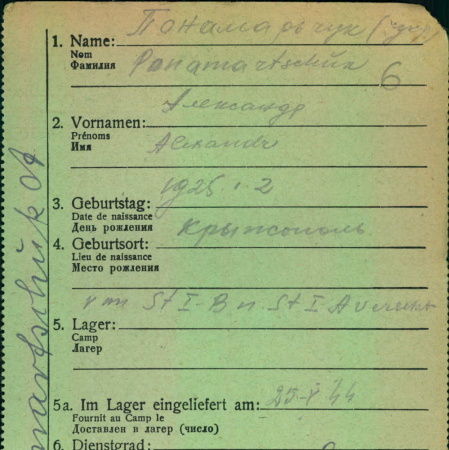 Панамарчук
1. Name:
Nom
Фамилия
Panamartschuk
6
Александр
2. Vornamen:
Prénoms
Имя
Alexandr
1925. 1. 2
3. Geburtstag:
Date de naissance
День рождения
Крыжополь
4. Geburtsort:
Lieu de naissance
Место рождения
St I-B n. St I A
5. Lager:
Camp
Лагер
25-X 44
5a. Im Lager eingeliefert am:
Fournit au Camp le
Доставлен в лагер (число)
6. Dienstgrad: